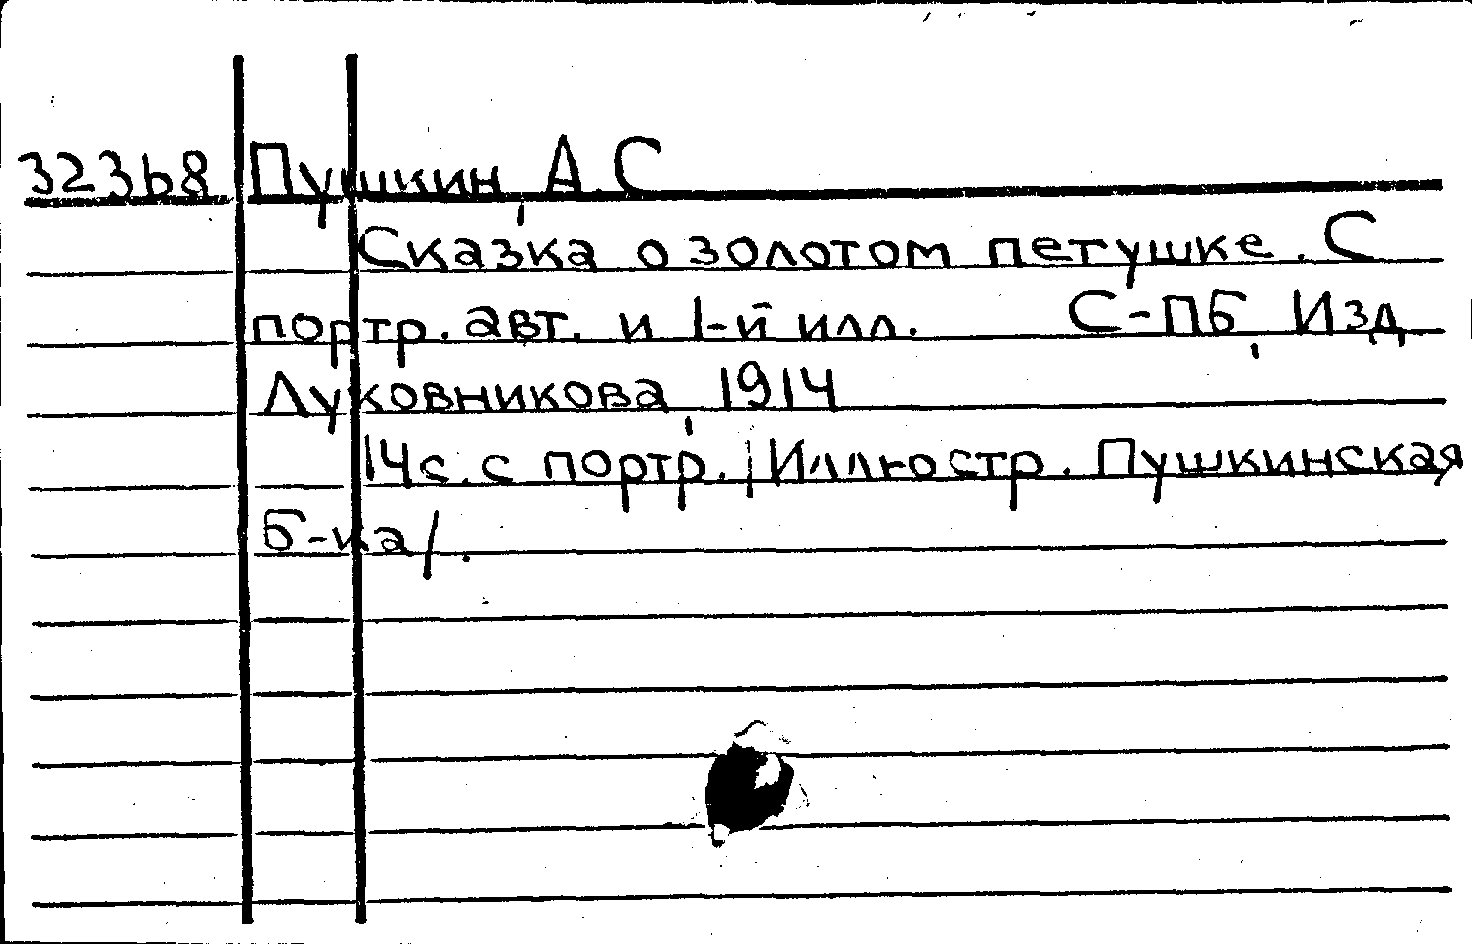 32368 Пушкин, А.С
Сказка о золотом петушке. С
портр. авт. и 1-й илл. С-ПБ, Изд
Луковникова, 1914
14с. с портр. /Иллюстр. Пушкинская
б-ка/.